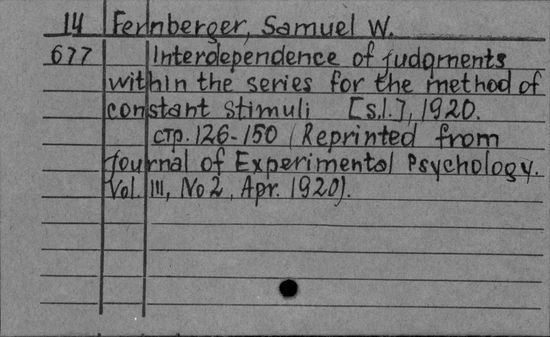 14 Fernberger, Samuel W.
677 Interdependence of judgments
within the series for the method of
constant stimuli [s.l.], 1920.
стр. 126-150 (Reprinted from
Journal of Experimental Psychology.
Vol. III, No 2, Apr. 1920).